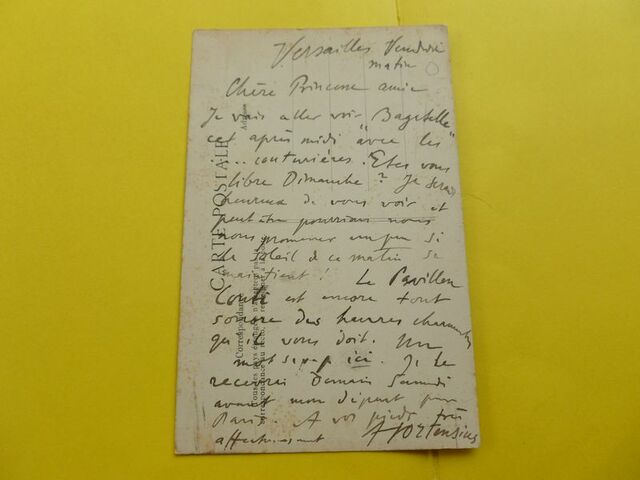 Versailles Vendredi
matin
Chère Princesse amie
Je vais aller voir "Bagatelle"
cet après midi "avec les
... couturières. Etes vous
libre Dimanche ? Je serais
heureux de vous voir et
peut être pourrions nous
nous promener un peu si
le Soleil de ce matin se
maintient ! Le Pavillon
est encore tout
sonore des heures charmantes
qu'il vous doit. Un
mot s.v.p. ici. Je le
recevrai Demain Samedi
avant mon départ pour
Paris. A vos pieds très
affectueusement
CARTE POSTALE
Correspondance
Adresse